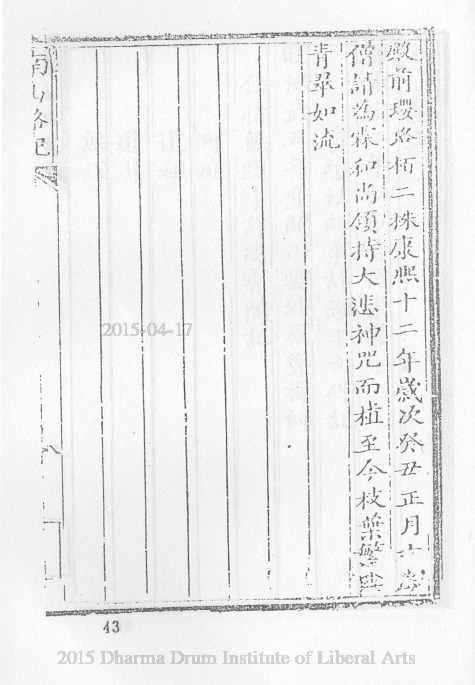 殿前瓔珞栢二株康熙十二年歲次癸丑正月
僧請為霖和尚領持大悲神咒而植至今枝葉繁
青翠如流
南山畧記
2015-04-17
43
2015 Dharma Drum Institute of Liberal Arts